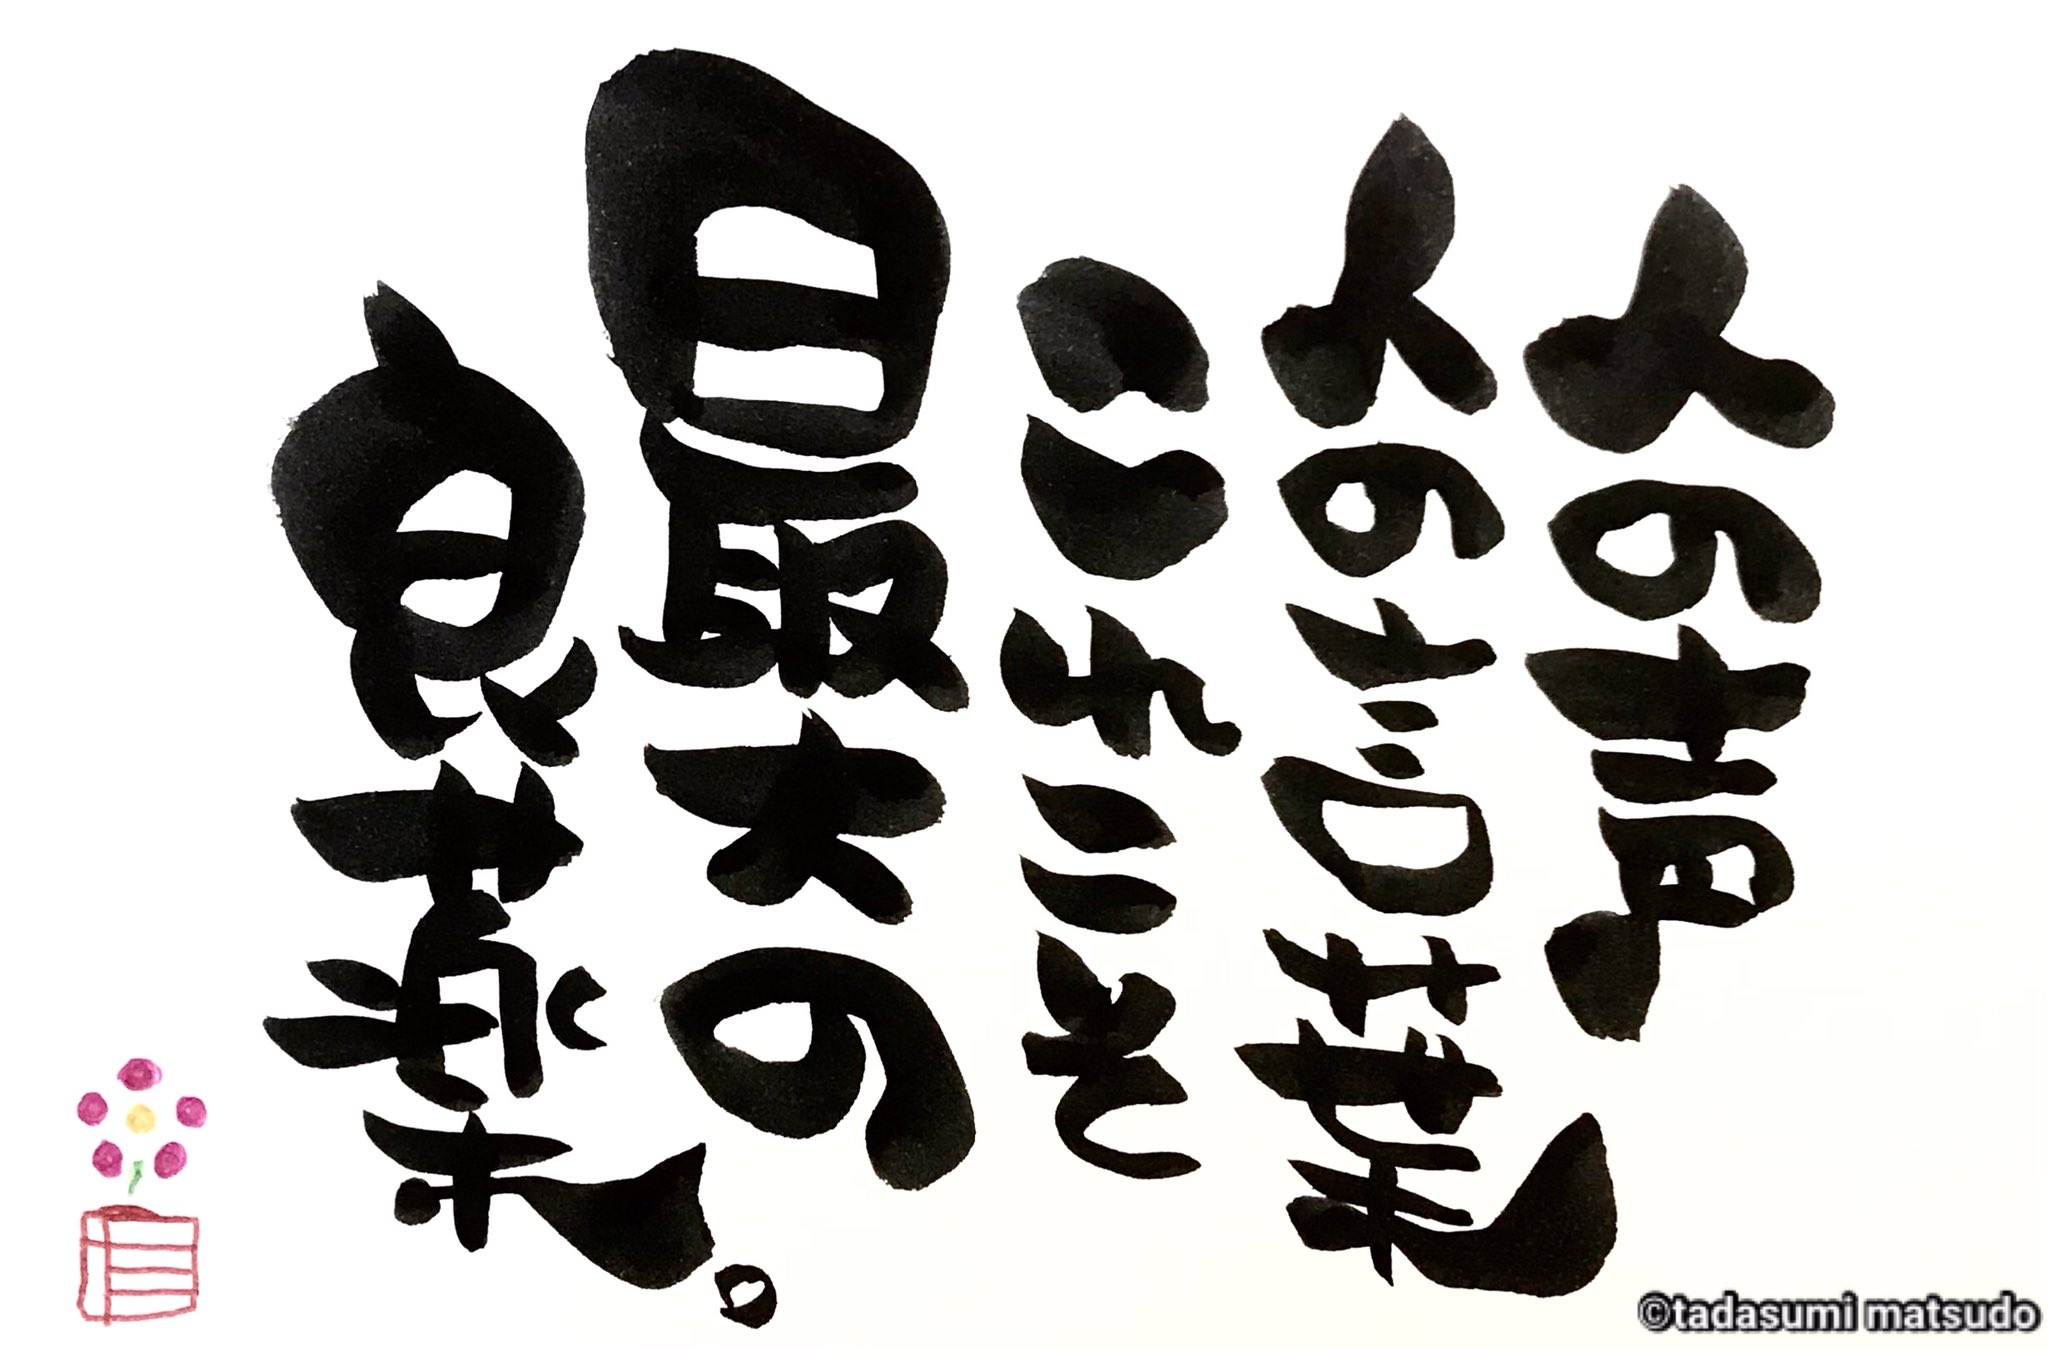 人の声
人の言葉
これこそ
最大の
良薬。
©tadasumi matsudo